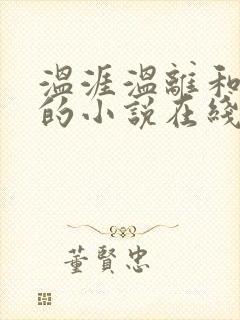 温涯温離和
的小說在綫
董賢忠